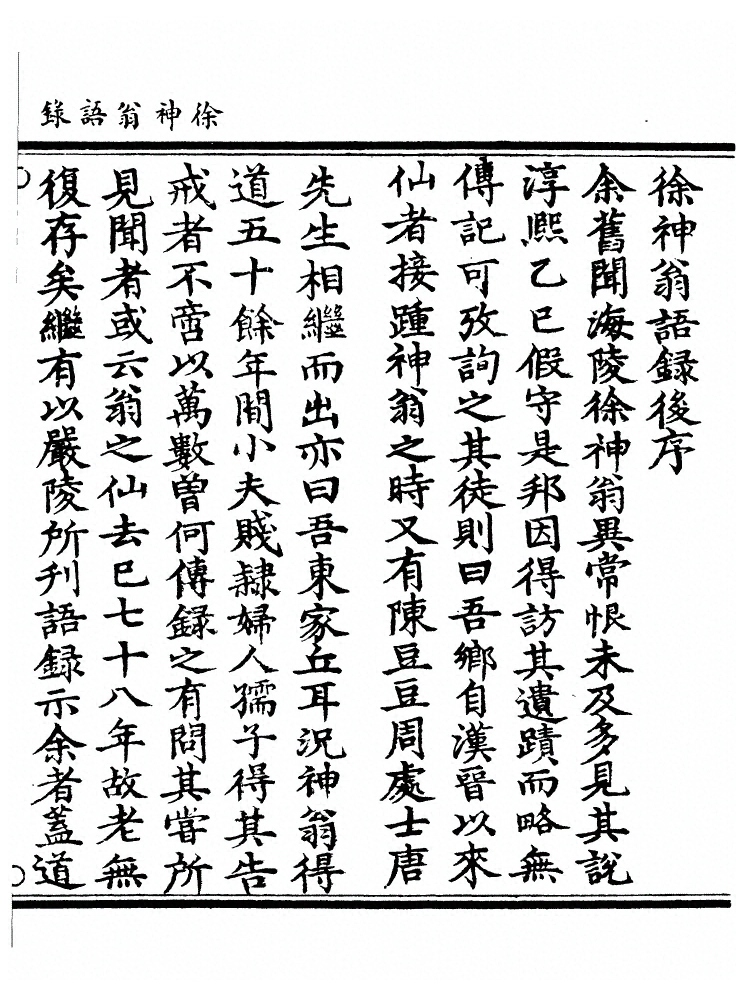 徐神翁語錄
徐神翁語録後序
余舊聞海陵徐神翁異常恨未及多見其說
淳熈乙巳假守是邦因得訪其遺蹟而略無
傳記可攷詢之其徒則曰吾鄉自漢晉以來
仙者接踵神翁之時又有陳豆豆周處士唐
先生相繼而出亦曰吾東家丘耳況神翁得
道五十餘年間小夫賤隷婦人孺子得其告
戒者不啻以萬數曽何傳録之有問其甞所
見聞者或云翁之仙去巳七十八年故老無
復存矣繼有以嚴陵所刋語録示余者蓋道